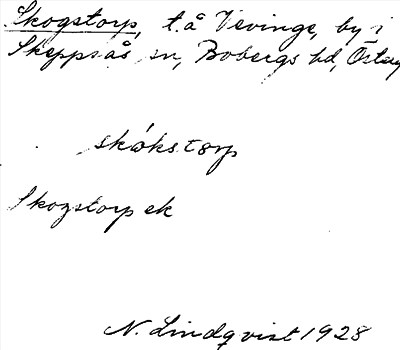 Skogstorp, t. å Vevinge, by i
Skeppsås sn, Bobergs hd, Österg
skókstorp
Skogstorp ek
N. Lindqvist 1928